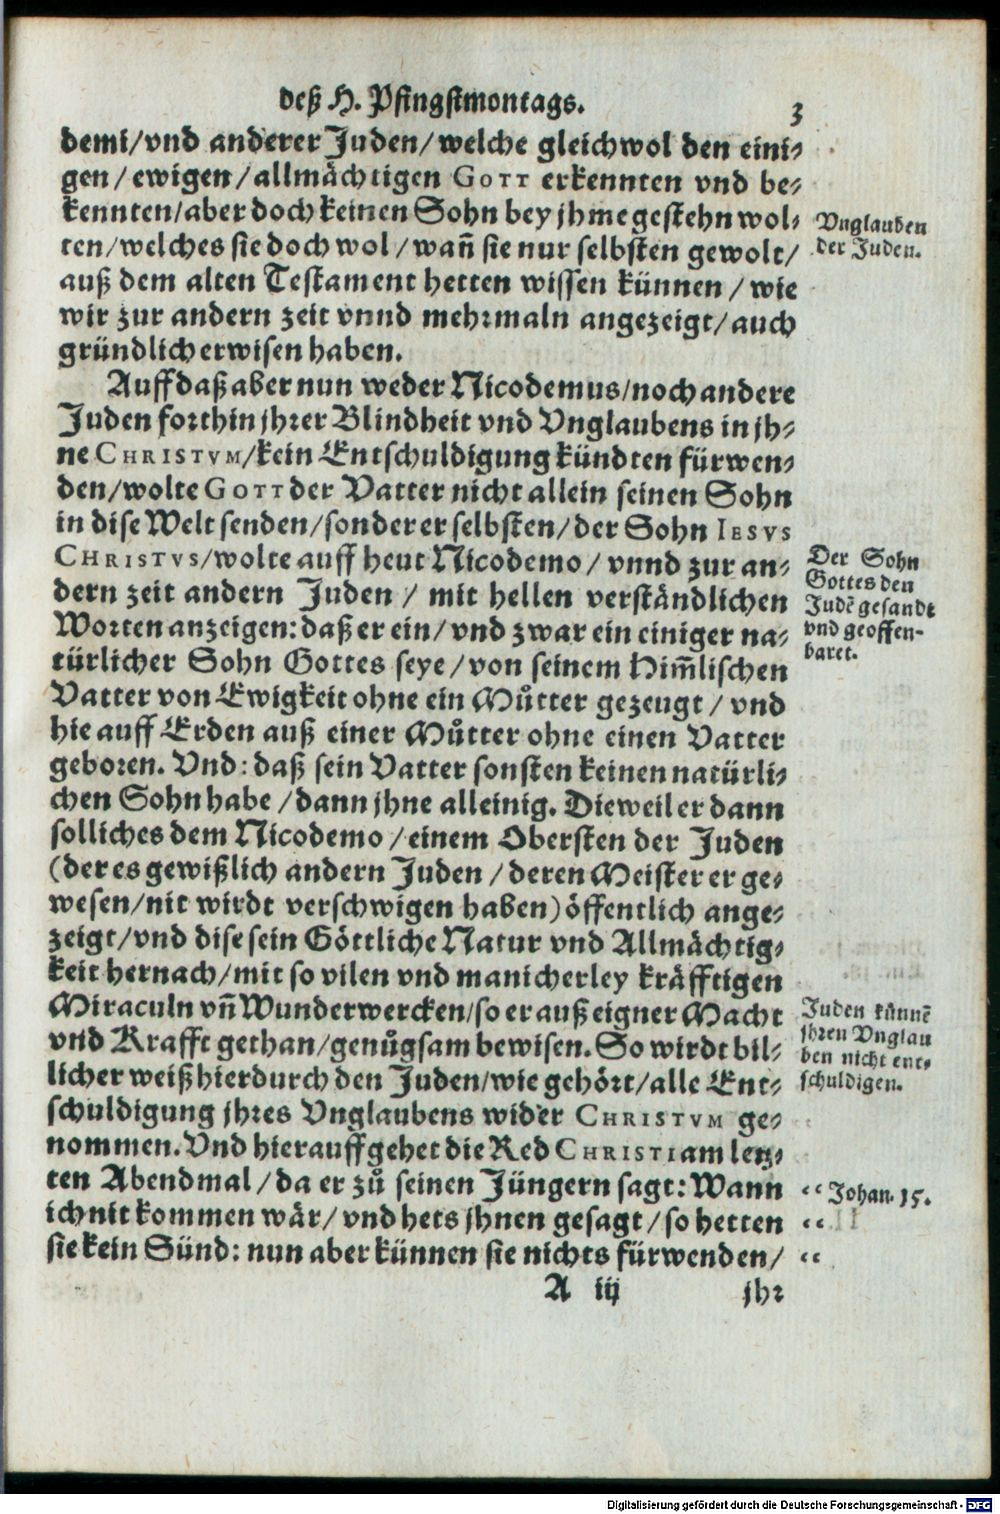 deß H. Pfingstmontags.
3
demi/vnd anderer Juden/welche gleichwol den eini-
gen/ewigen/allmächtigen GOTT erkennten vnd be-
kennten/aber doch keinen Sohn bey jhme gestehn wol-
ten/welches sie doch wol/wañ sie nur selbsten gewolt/
auß dem alten Testament hetten wissen künnen/wie
wir zur andern zeit vnnd mehrmaln angezeigt/auch
gründlich erwisen haben.
Vnglauben
der Juden.
Auff daß aber nun weder Nicodemus/noch andere
Juden forthin jhrer Blindheit vnd Vnglaubens in jh-
ne CHRISTVM/kein Entschuldigung kündten fürwen-
den/wolte GOTT der Vatter nicht allein seinen Sohn
in dise Welt senden/sonder er selbsten/der Sohn IESVS
CHRISTVS/wolte auff heut Nicodemo/vnnd zur an-
dern zeit andern Juden/mit hellen verständlichen
Worten anzeigen: daß er ein/vnd zwar ein einiger na-
türlicher Sohn Gottes seye/von seinem Him̃lischen
Vatter von Ewigkeit ohne ein Muͦtter gezeugt/vnd
hie auff Erden auß einer Muͦtter ohne einen Vatter
geboren. Vnd: daß sein Vatter sonsten keinen natürli-
chen Sohn habe/dann jhne alleinig. Dieweil er dann
solliches dem Nicodemo/einem Obersten der Juden
(der es gewißlich andern Juden/deren Meister er ge-
wesen/nit wirdt verschwigen haben) öffentlich ange-
zeigt/vnd dise sein Göttliche Natur vnd Allmächtig-
keit hernach/mit so vilen vnd manicherley kräfftigen
Miraculn vñ Wunderwercken/so er auß eigner Macht
vnd Krafft gethan/genuͦgsam bewisen. So wirdt bil-
licher weiß hierdurch den Juden/wie gehört/alle Ent-
schuldigung jhres Vnglaubens wider CHRISTVM ge-
nommen. Vnd hierauff gehet die Red CHRISTI am letz-
ten Abendmal/da er zuͦ seinen Jüngern sagt: Wann
ich nit kommen wär/vnd hets jhnen gesagt/so hetten
sie kein Sünd: nun aber künnen sie nichts fürwenden/
Der Sohn
Gottes den
Judẽ gesandt
vnd geoffen-
baret.
Juden künnẽ
jhren Vnglau
ben nicht ent-
schuldigen.
“ Johan. 15.
“
“
A iij
jhr
Digitalisierung gefördert durch die Deutsche Forschungsgemeinschaft - DFG